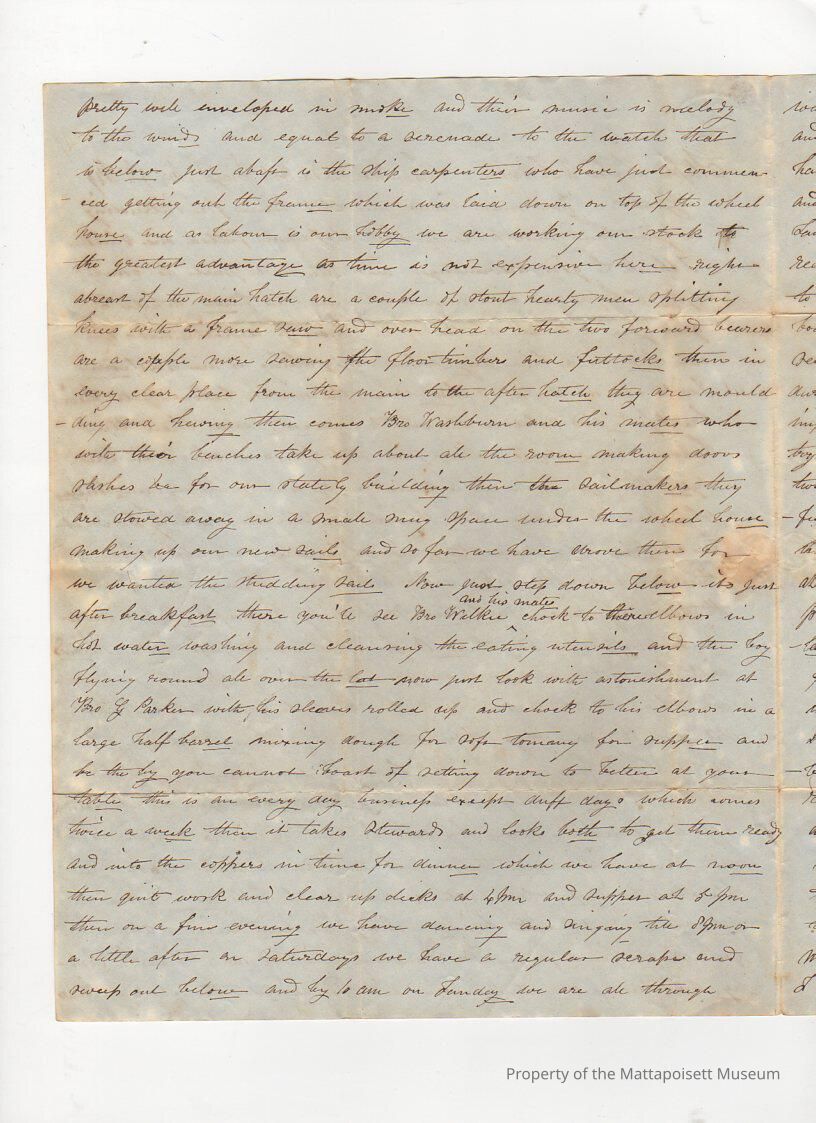 pretty well enveloped in smoke and their music is melody
to the winds and equal to a serenade to the watch that
is below just abaft is the ship carpenters who have just commen-
-ced getting out the frame which was laid down on top of the wheel
house and as labour is our hobby we are working our stock to
the greatest advantage as time is not expensive here right
abreast of the main hatch are a couple of stout hearty men splitting
knees with a frame saw and over head on the two forward bearers
are a couple more sawing the floor timbers and futtocks then in
every clear place from the main to the after hatch they are mould
-ding and hewing then comes Bro Washburn and his mates who
with their benches take up about all the room making doors
slashes &c for our stately building then the sailmakers they
are stowed away in a small snug space under the wheel house
making up our new sails and so far we have drove them for
we wanted the studding sails Now just step down below its just
after breakfast there you'll see Bro Wilkie and his mates chock to there elbows in
hot water washing and cleansing the eating utensils and the boy
flying round all over the lot now just look with astonishment at
Bro G Parker with his sleaves rolled up and chock to his elbows in a
large half barrel mixing dough for soft tommy for supper and
be the by you cannot boast of setting down to better at your
table this is an every day business except duff days which comes
twice a week then it takes Stewards and cooks both to get them ready
and into the coppers in time for dinner which we have at noon
then quit work and clear up decks at 4 pm and supper at 5 pm
then on a fine evening we have dancing and singing till 8 pm or
a little after on Saturdays we have a regular scrape and
sweep out below and by 10 am on Sunday we are all through
Property of the Mattapoisett Museum